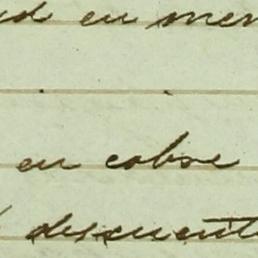 en men
en cobre
descuent